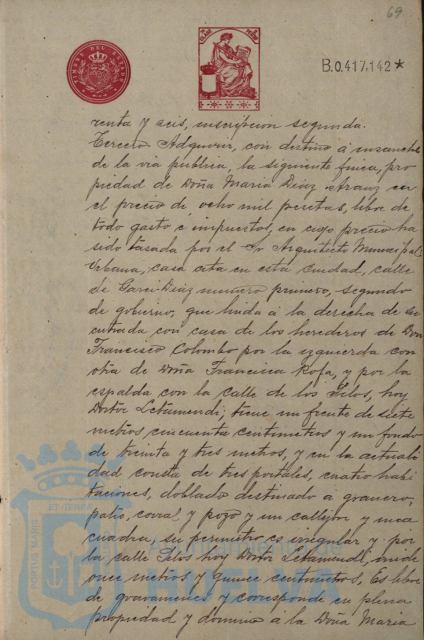 69
TIMBRE DEL ESTADO
B.0.417,142*
renta y seis, inscripcion segunda.
Tercero Adquirir, con destino á ensanche
de la via publica, la siguiente finca, pro
piedad de Doña Maria Diaz Aranz en
el precio de ocho mil pesetas, libre de
todo gasto é impuestos, en cuyo precio ha
sido tasada por el Sr Arquitecto Municipal:
Urbana, casa sita en esta ciudad, calle
de Garci-Diaz numero primero, segundo
de gobierno, que linda á la derecha de su
entrada con casa de los herederos de Don
Francisco Colombo por la izquierda con
otra de Doña Francisca Rofa, y por la
espalda con la calle de los Silos, hoy
Doctor Letamendi, tiene un frente de siete
metros cincuenta centimetros y un fondo
de treinta y tres metros, y en la actuali
dad consta de tres portales, cuatro habi
taciones, doblado destinado a granero,
patio, corral y pozo y un callejon y una
cuadra; su perimetro es irregular y por
la calle Silos hoy Doctor Letamendi, mide
once metros y quince centimetros, Es libre
de gravamenes y corresponde en plena
propiedad y dominio a la Doña Maria
PORTUS MARIS
ET TERRAE